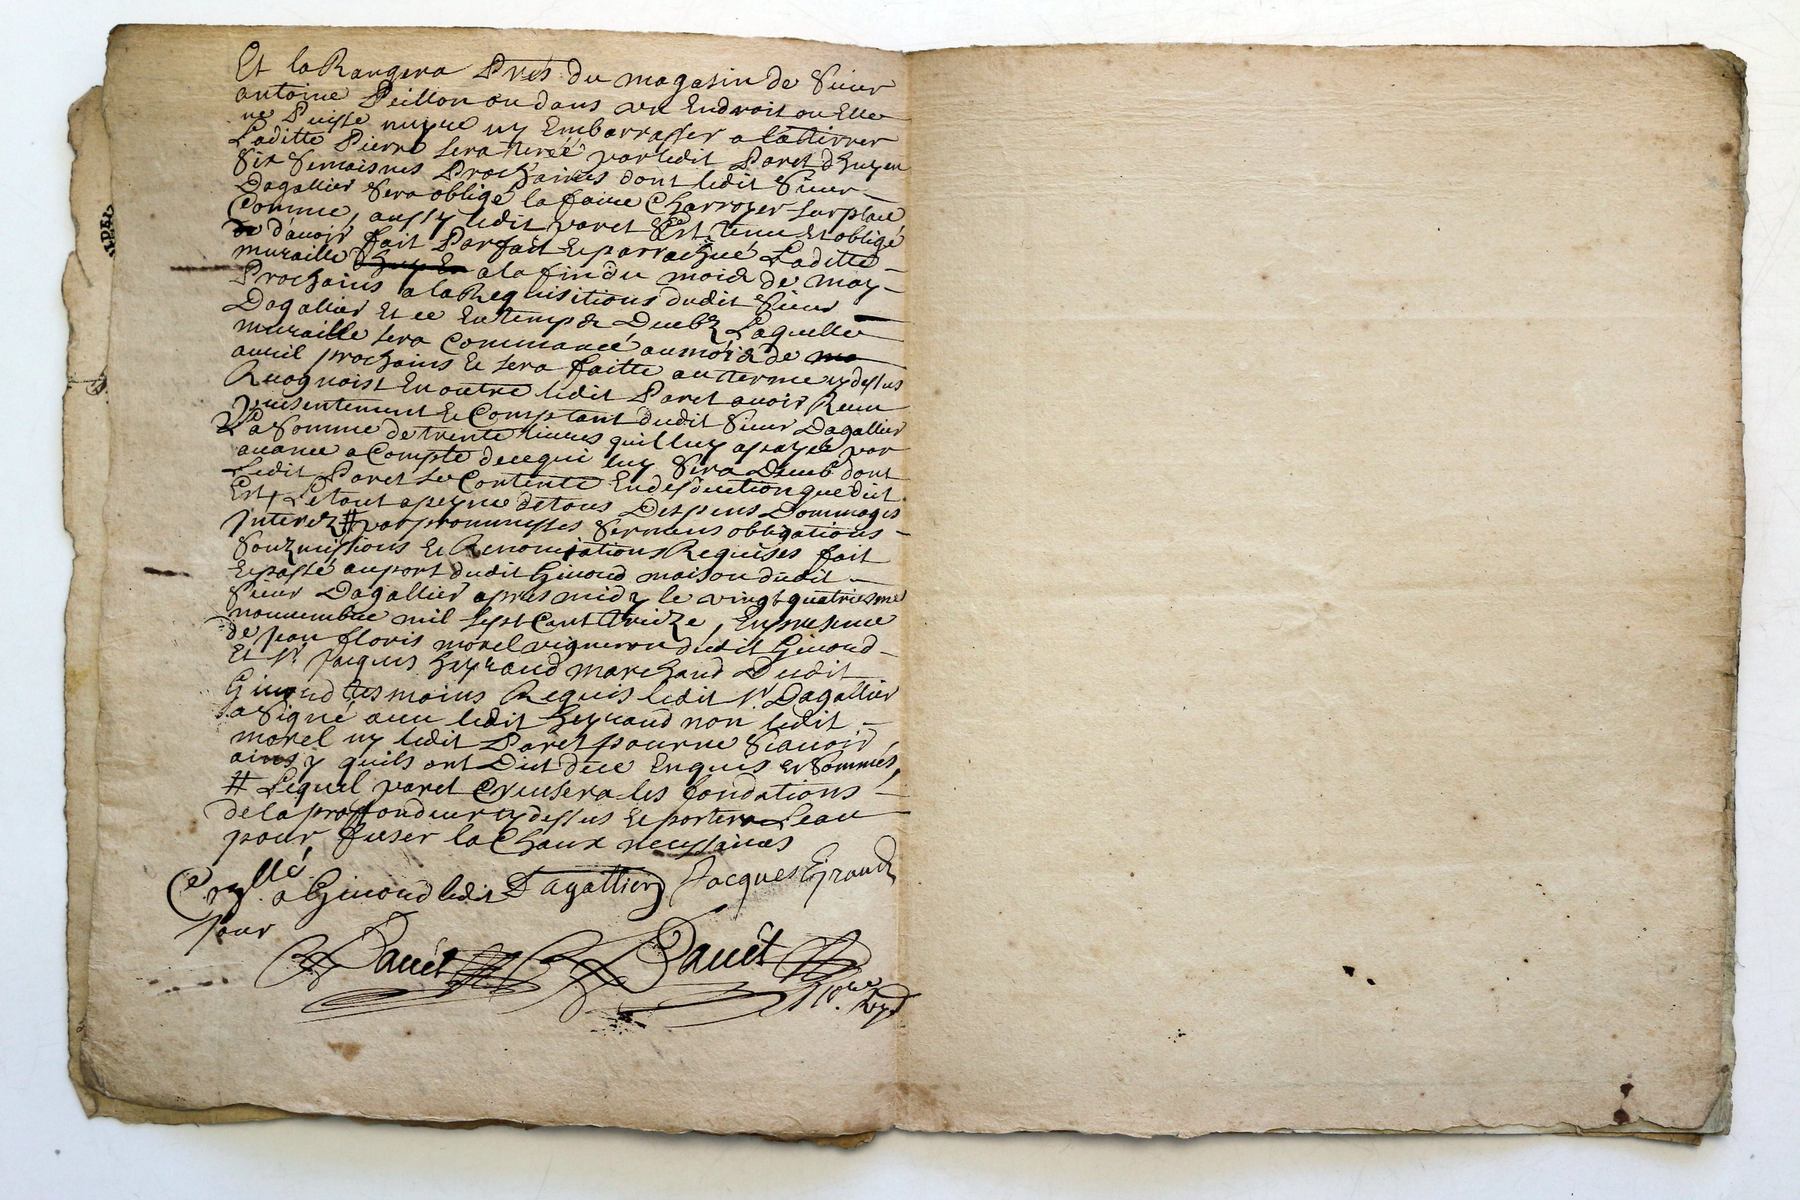 Et la Rangera Prés du magasin de Sieur
antoine Peillon ou dans un Endroit ou Elle
ne Puisse nuyre ny Embarrasser a
Laditte Pierre sera tirée par ledit Paret d'huy en
Six Semaisnes Prochaines dont ledit Sieur
Dagallier Sera obligé la faire Charroyer sur place
Comme, aussy ledit paret Est tenu Et obligé
d'auoir fait Parfait Et parrachué Laditte
muraille a la fin du mois de may
Prochains a la Requisitions dudit Sieur
Dagallier Et ce En temps Deubz Laquelle
muraille sera Commancé au mois de
auril prochains Et sera faitte au terme cy dessus
Recognoist En outre ledit Paret auoir Receu
Presentement Et Comptant dudit Sieur Dagallier
La Somme de trente liures quil luy a payé par
auance a Compte de ce qui luy Sera Deub dont
Ledit Paret se Contente En desduction que dict
Est, Le tout a peyne de tous Despens Dommages
Interez # par promesses Sermens obligations
Soubzmissions Et Renonciations Requises fait
Et passé au port dudit Ginoud maison dudit
Sieur Dagallier apres midy le vingt quatriesme
nouuembre mil sept Cent treize, En presence
de Jean floris morel vigneron dudit Ginoud
Et Sr Jacques Heyraud marchand Dudit
Ginoud tesmoins Requis ledit Sr. Dagallier
a Signé auec ledit Heyraud non ledit
morel ny ledit Paret pour ne Scauoir,
ainsy quils ont Dict de ce Enquis Et Sommés,
# Lequel paret Creusera les fondations
de la proffondeur cy dessus Et portera Leau
pour fuser la Chaux necessaires
a Ginoud ledit Dagallier Jacques
jour